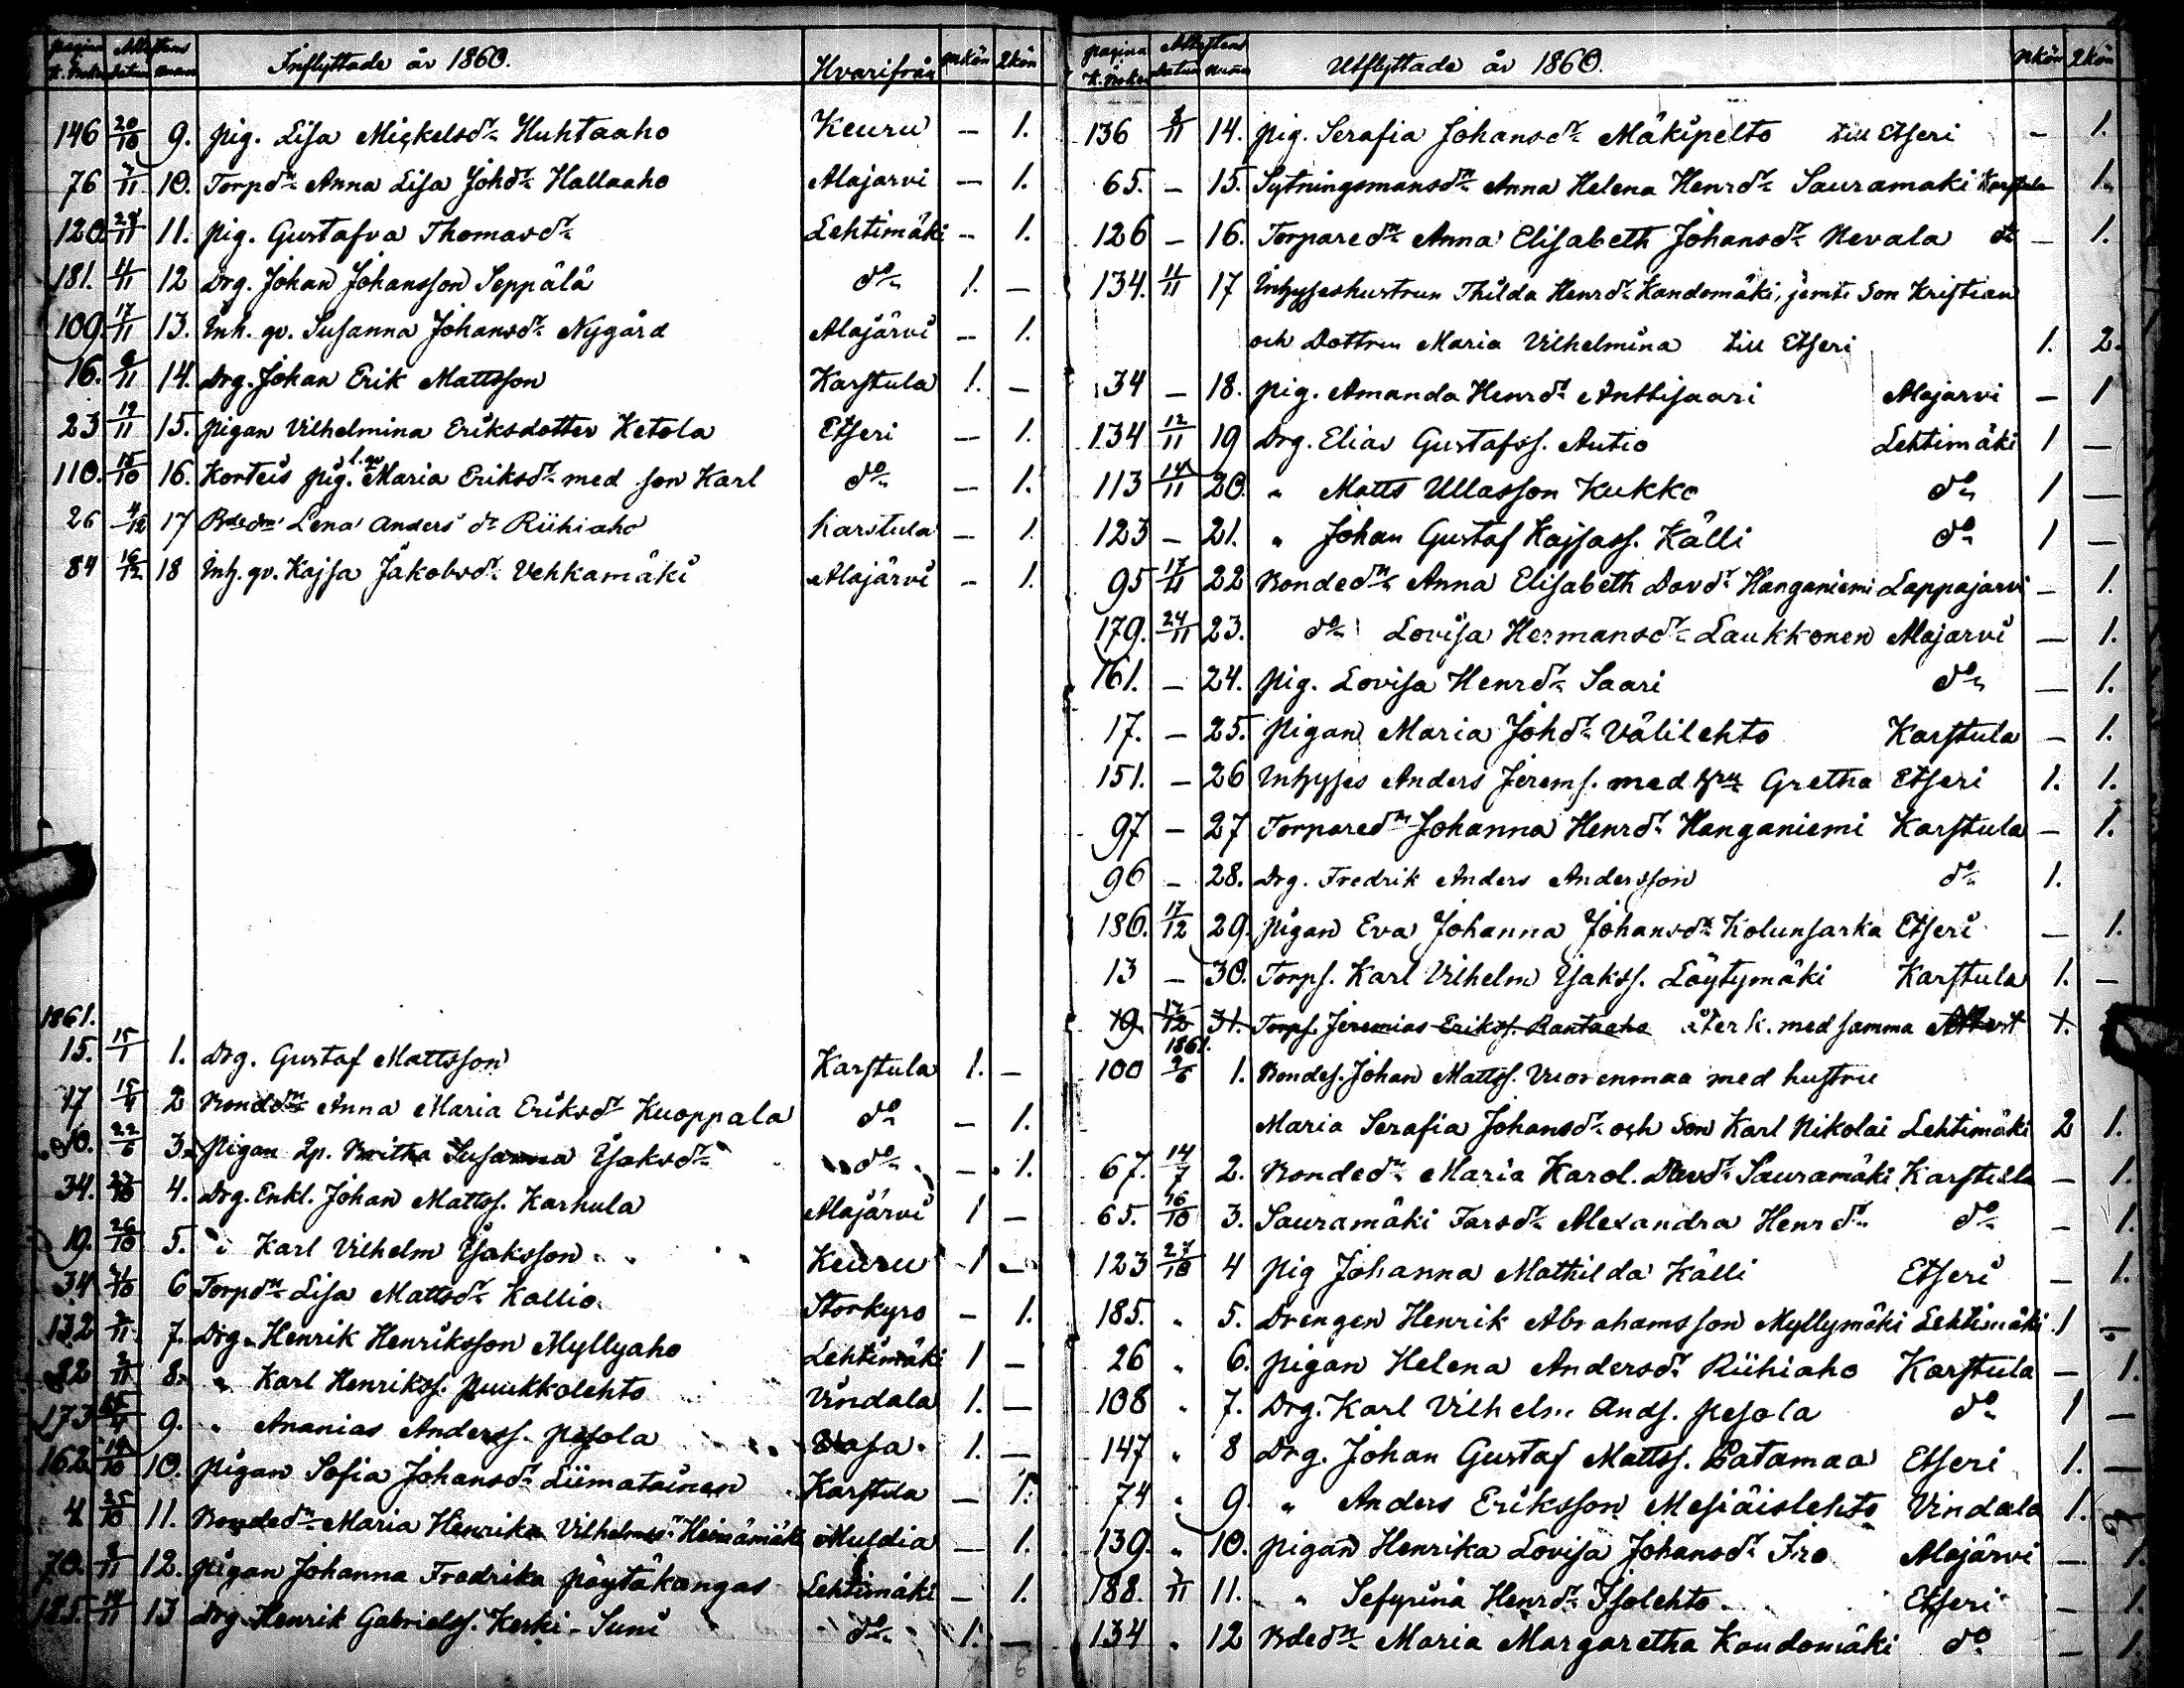 pagina k. boken Attestens datum num Inflyttade år 1860. Hvarifrån mkön qkön
146 20/10 9. pig. Lisa Mickelsdr Huhtaaho Keuru — 1.
76 /11 10. Torpdr Anna Lisa Johdr Hallaaho Alajarvi — 1.
120. 28/11 11. pig. Gustafva Thomasdr Lehtimäki — 1.
181. 4/11 12 Drg. Johan Johansson Seppälä do 1. —
109. 17/11 13. Inh. qv. Susanna Johansdr Nygård Alajärvi — 1.
16. /11 14. Drg. Johan Erik Mattsson Karstula 1. —
23 19/11 15. pigan Vilhelmina Eriksdotter Ketola Etseri — 1.
110. 15/10 16. Korteis pig. Maria Eriksdr med son Karl do — 1.
26 4/12 17 Bdedr Lena Anders dr Riihiaho Karstula — 1.
84 16/12 18 Inh. qv. Kajsa Jakobsdr Vehkamäki Alajärvi — 1.
1861.
15. 15/1 1. Drg. Gustaf Mattsson Karstula 1. —
17 15/4 2 Bondedr Anna Maria Eriksdr Kuoppala do — 1.
10. 22/6 3. Pigan Qp. Britha Susanna Isaksdr do — 1.
34. /10 4. Drg. Enkl. Johan Mattss. Karhula Alajärvi 1 —
19. 26/10 5. " Karl Vilhelm Isaksson Keuru 1 —
34 /10 6 Torpdr Lisa Mattsdr Kallio Storkyro — 1.
132 /11 7. Drg. Henrik Henriksson Myllyaho Lehtimäki 1 —
82 2/11 8. " Karl Henrikss. Puukkolehto Vindala 1. —
173 9. " Ananias Anderss. Pesola Vasa 1. —
162 19/10 10. pigan Sofia Johansdr Liimatainen Karstula — 1.
4 25/10 11. Bondedr Maria Henrika Vilhelmsdr Heinämäki Muldia — 1.
70. /11 12. pigan Johanna Fredrika Pöytäkangas Lehtimäki — 1.
185. 14/11 13 Drg Henrik Gabrielss. Keski-Suni do 1. —
pagina k. boken Attestens datum num Utflyttade år 1860. mkön qkön
136 /11 14. pig. Serafia Johansdr Mäkipelto till Etseri — 1.
65. — 15. Sytningsmansdr Anna Helena Henrdr Sauramaki Karstula 1.
126 — 16. Torparedr Anna Elisabeth Johansdr Nevala do — 1.
134. 11/11 17 Inhyseshustrun Thilda Henrdr Kandomäki, jemte Son Kristian
och Dottren Maria Vilhelmina till Etseri 1. 2.
34 — 18. pig. Amanda Henrdr Anttisaari Alajarvi — 1
134 12/11 19 Drg. Elias Gustafss. Autio Lehtimäki 1 —
113 14/11 20. " Matts Ullasson Kukko do 1 —
123 — 21. " Johan Gustaf Kajsass. Källi do 1 —
95 17/11 22 Bondedr Anna Elisabeth Davdr Hanganiemi Lappajarvi — 1.
179. 24/11 23. do Lovisa Hermansdr Laukkonen Alajarvi — 1.
161. — 24. pig. Lovisa Henrdr Saari do — 1.
17. — 25. pigan Maria Johdr Välilehto Karstula — 1.
151. — 26 Inhyses Anders Jerems. med hru Gretha Etseri 1. 1.
97 — 27 Torparedr Johanna Henrdr Hanganiemi Karstula — 1.
96 — 28. Drg. Fredrik Anders Andersson do 1.
186. 17/12 29. pigan Eva Johanna Johansdr Kolunsarka Etseri — 1.
13 — 30. Torps. Karl Vilhelm Isakss. Löytymäki Karstula 1. —
19. 17/12 31. Torps. Jeremias Erikss. Rantaaho åter k. med samma Attest 1.
1861.
100 9/6 1. Bondes. Johan Mattss. Vuorenmaa med hustru
Maria Serafia Johansdr och Son Karl Nikolai Lehtimäki 2 1.
67. 14/7 2. Bondedr Maria Karol. Davdr Sauramäki Karstula — 1.
65. 16/10 3. Sauramäki Farsdr Alexandra Henr dr do — 1.
123 27/10 4 pig Johanna Mathilda Källi Etseri — 1.
185. " 5. Drengen Henrik Abrahamsson Myllymäki Lehtimäki 1 —
26 " 6. pigan Helena Andersdr Riihiaho Karstula — 1.
108 " 7. Drg. Karl Vilhelm Ands. Pesola do 1 —
147 " 8 Drg. Johan Gustaf Mattss. Patamaa Etseri 1. —
74 " 9. " Anders Eriksson Mesiäislehto Vindala 1.
139. " 10. pigan Henrika Lovisa Johansdr Iro Alajärvi — 1.
188. /11 11. " Sefyrina Henrdr Isolehto Etseri — 1.
134 " 12 Bdedr Maria Margaretha Kandomäki do — 1.